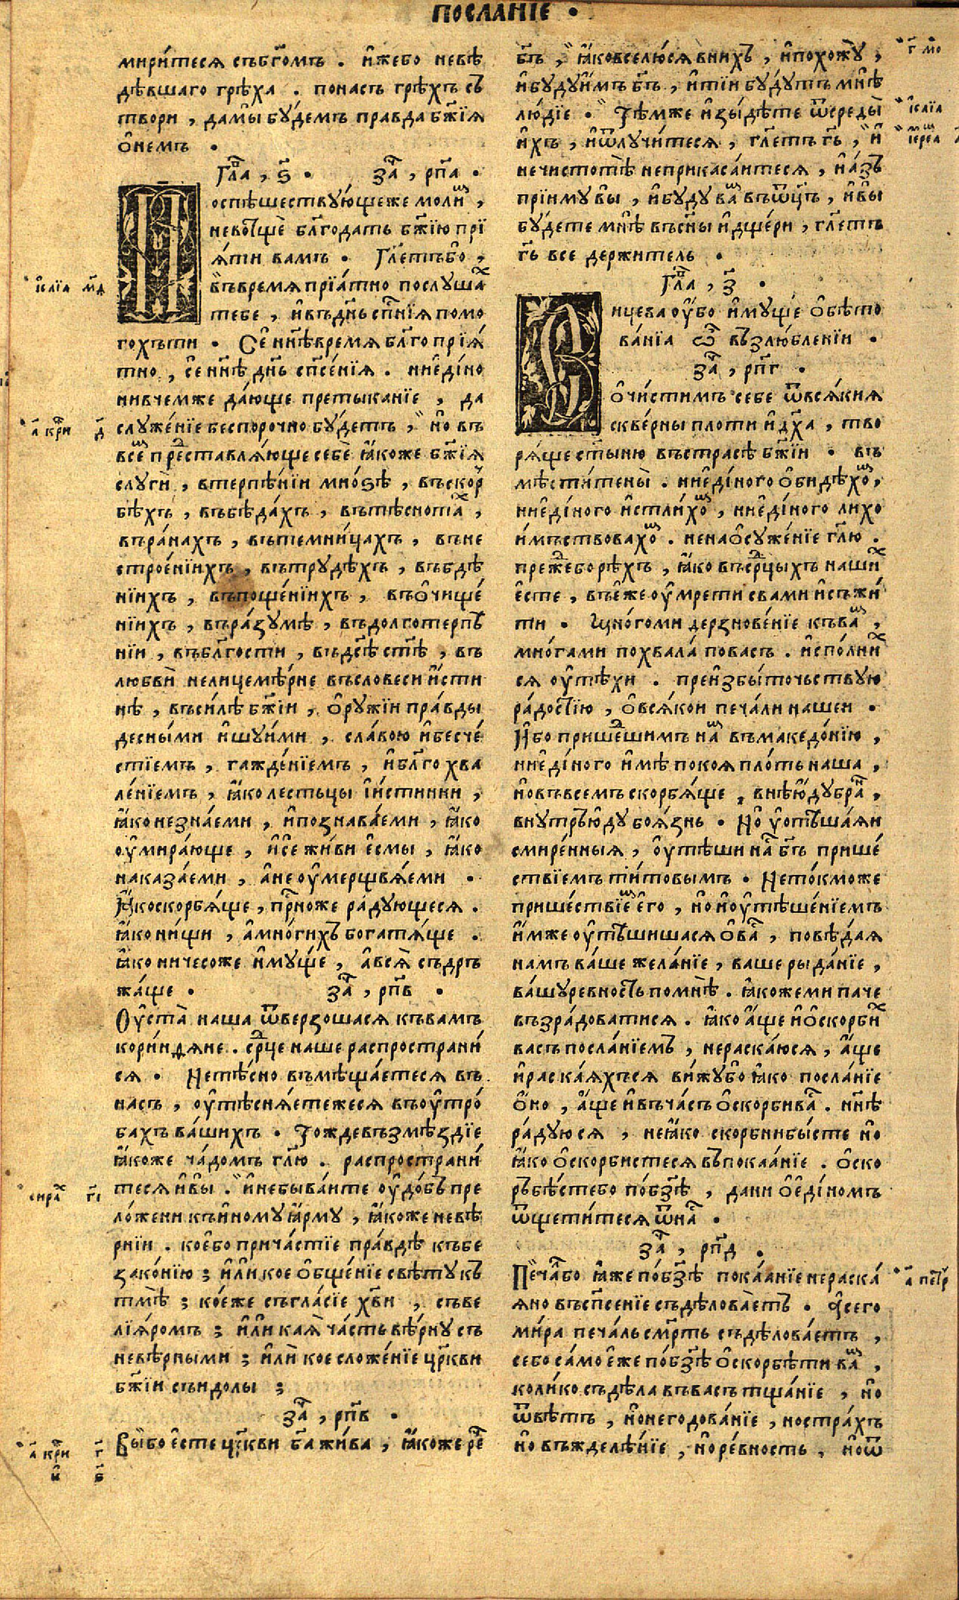 ПОСЛАНІЕ •
мири́теся събг҃омъ . и҆жебо невѣ
дѣвшаго грѣха . понасъ грѣхъ съ
твори , дамы бу́демъ правда бж҃їѧ
ѡ҆немъ •
Гла҃ , ѕ҃ • за҃ , рп҃а •
Поспѣшествꙋ́ющеже молим ,
невотщѐ блг҃одать бж҃їю прї
ѧ́ти вамъ • Гл҃етъбо ,
Въвремѧ прїа́тно послушахъ
тебе , и҆въдн҃ь сп҃нїѧ помо
гохъти • Се́ ни҃ѣвремѧ бл҃го прїѧ́
тно , се́ ни҃ѣ дн҃ь сп҃се́нїѧ . ниеді́но
нивчемже да́юще претыканїе , да
слꙋже́нїе беспорочно бꙋдетъ , но въ
всемъ представлѧ́юще себѐ ꙗ҆́коже бж҃їѧ
слꙋгѝ , втерпѣ́нїи мно́зѣ , въскор
бѣхъ , въбѣда́хъ , вътѣснота ,
въра́нахъ , вътемни́цахъ , въне
строе́нїихъ , вътрꙋдѣхъ , въбдѣ
нїихъ , въпоще́нїихъ , въѡ҆чище́
нїихъ , въра́зꙋмѣ , въдолготерпѣ
нїи , въбл҃гости , въдс҃ѣ ст҃ѣ , въ
любвѝ нелицемѣ́рне въсловеси и҆́сти
нѣ , въси́лѣ бж҃їи , ѻ҆рꙋжїи пра́вды
десны́ми и҆шꙋи́ми , сла́вою и҆бесче́
стїемъ , гажде́нїемъ , и҆бл҃го хва
ле́нїемъ , ꙗ҆́ко лестьцы і҆́стинни ,
ꙗ҆́ко незна́еми , и҆познава́еми , ꙗ҆́ко
ᲂу҆мира́юще , и҆се́ жи́ви є҆смы , ꙗ҆́ко
наказа́еми , а҆не ᲂу҆мерщвѧ́еми •
Ꙗ҆́коскорбѧ́ще , приноже ра́дꙋющесѧ .
ꙗ҆́ко нищи , а҆мно́гихъ богатѧ́ще .
ꙗ҆́ко ничесоже и҆мꙋще , а҆всѧ̀ съдръ
жа́ще • за҃ , рп҃в •
Оу҆ста̀ наша ѿверзошасѧ къвамъ
кори́нѳѧне . ср҃це наше распространи́
сѧ • Нетѣ́сно въмѣща́етесѧ въ
насъ , ᲂу҆тѣснѧ́етежесѧ въᲂу҆тро́
бахъ ва́шихъ • Тождевъзмѣздїе
ꙗ҆́коже ча́домъ гл҃ю . распространи́
тесѧ и҆вы̀ . и҆небыва́ите ᲂу҆до́бь пре
ло́жени къи҆номꙋ ꙗ҆рмꙋ , ꙗ҆́коже невѣ́
рнїи . ко́ебо прича́стїе пра́вдѣ къбе
зако́нїю ; и҆лѝ кое ѻ҆бще́нїе свѣтꙋ къ
тмѣ ; ко́еже съгла́сїе хв҃и , съве
лїѧ́ромъ ; и҆лѝ каѧ̀ ча́сть вѣ́рнꙋ съ
невѣрными ; и҆лѝ кое сложе́нїе цр҃кви
бж҃їи съидолы ;
за҃ , рп҃в •
Выбо є҆сте цр҃кви бг҃а жи́ва , ꙗ҆́коже рече
бг҃ъ , ꙗ҆́ковселю́сѧ вни́хъ , и҆похожꙋ ,
и҆бꙋдꙋи҆мъ бг҃ъ , и҆тїи бꙋ́дꙋтъ мнѣ̀
лю́дїе • Тѣмже и҆зы́дѣте ѿсреды̀
и҆́хъ , и҆ѿлꙋчи́тесѧ , гл҃етъ гь҃ , и҆
нечистотѣ̀ неприкаса́итесѧ , и҆а҆зъ
прїимꙋ вы , и҆бꙋдꙋ вамъ въѿц҃ъ , и҆вы
бꙋдете мнѣ̀ въсны и҆дщери , гл҃етъ
гь҃ все держитель •
Гла҃ , з҃ •
Сицева ᲂу҆́бо и҆мꙋще ѻ҆бѣто
ва́нїа ѿ възлю́бленїи •
за҃ , рп҃г •
ѡ҆чи́стимъ себе ѿвсѧ́киѧ
скве́рны плоти и҆дх҃а , тво
рѧ́ще ст҃ыню въстрасѣ бж҃їи • въ
мѣститены̀ . ниеді́ного ѻ҆бидѣхом ,
ниеді́ного и҆стлихом , ниеді́ного лихо
и҆мъствовахом . ненаѻ҆сꙋже́нїе гл҃ю .
прежебо рѣхъ , ꙗ҆́ко въср҃цыхъ наших
є҆сте , въе҆же ᲂу҆мрети свами и҆съжи́
ти • Мно́гоми дерзнове́нїе къвам ,
мно́гами похвала̀ повасъ . и҆спо́лних
сѧ ᲂу҆тѣ́хи . преи҆збы́точьствꙋю
ра́достїю , ѡ҆всѧ́кои печа́ли нашеи •
И҆бо прише́шимъ нам въмакедо́нїю ,
ниеді́ного и҆мѣ поко́ѧ пло́ть наша ,
новъвсемъ скорбѧ́ще , внѣю́дꙋ брани ,
внꙋтрьюдꙋ боѧ́знь • Но ᲂу҆тѣша́ѧи
смире́нныѧ , ᲂу҆тѣши на бг҃ъ прише́
ствїемъ ти́товымъ • Нето́кможе
прише́ствїем є҆го̀ , но и҆ᲂу҆тѣше́нїемъ
и҆́мже ᲂу҆тѣшишасѧ ѡ҆вас , повѣ́даѧ
намъ ва́ше жела́нїе , ваше рыда́нїе ,
ва́шꙋ ревность помнѣ̀ . ꙗ҆́кожеми паче
възра́доватисѧ . ꙗ҆́ко а҆́ще и҆ѡ҆скорбих
васъ посла́нїемъ , нераска́юсѧ , а҆́ще
и҆раска́ѧхъсѧ ви́жꙋбо ꙗ҆́ко посла́нїе
ѻ҆́но , а҆́ще и҆въча́съ ѡ҆скорбива . ни҃ѣ
ра́дꙋюсѧ , неꙗ҆́ко скорбнибы́сте но
ꙗ҆́ко ѡ҆скорби́стесѧ въпокаа́нїе . ѡ҆ско
рьбѣ́стебо побз҃ѣ , дани ѡ҆еді́номъ
ѿщети́тесѧ ѿнас •
за҃ , рп҃д •
Печа́лбо ꙗ҆́же побз҃ѣ пока́анїе нераска́
ѧно въсп҃се́нїе съдѣлова́етъ . а҆сего
мира печа́ль смр҃ть съдѣлова́етъ ,
себо са́мо є҆же побз҃ѣ ѡ҆скорбѣ́ти вам ,
коли́ко съдѣла въвасъ тща́нїе , но
ѿвѣтъ , нонегодова́нїе , нострахъ
но въжделѣ́нїе , норе́вность , ноѿ
исаїа мд
а҃ кри д҃
сирах гі
а҃ кри г҃
и҃ ѕ҃
г҃ мо
исаїа
а҃ петр